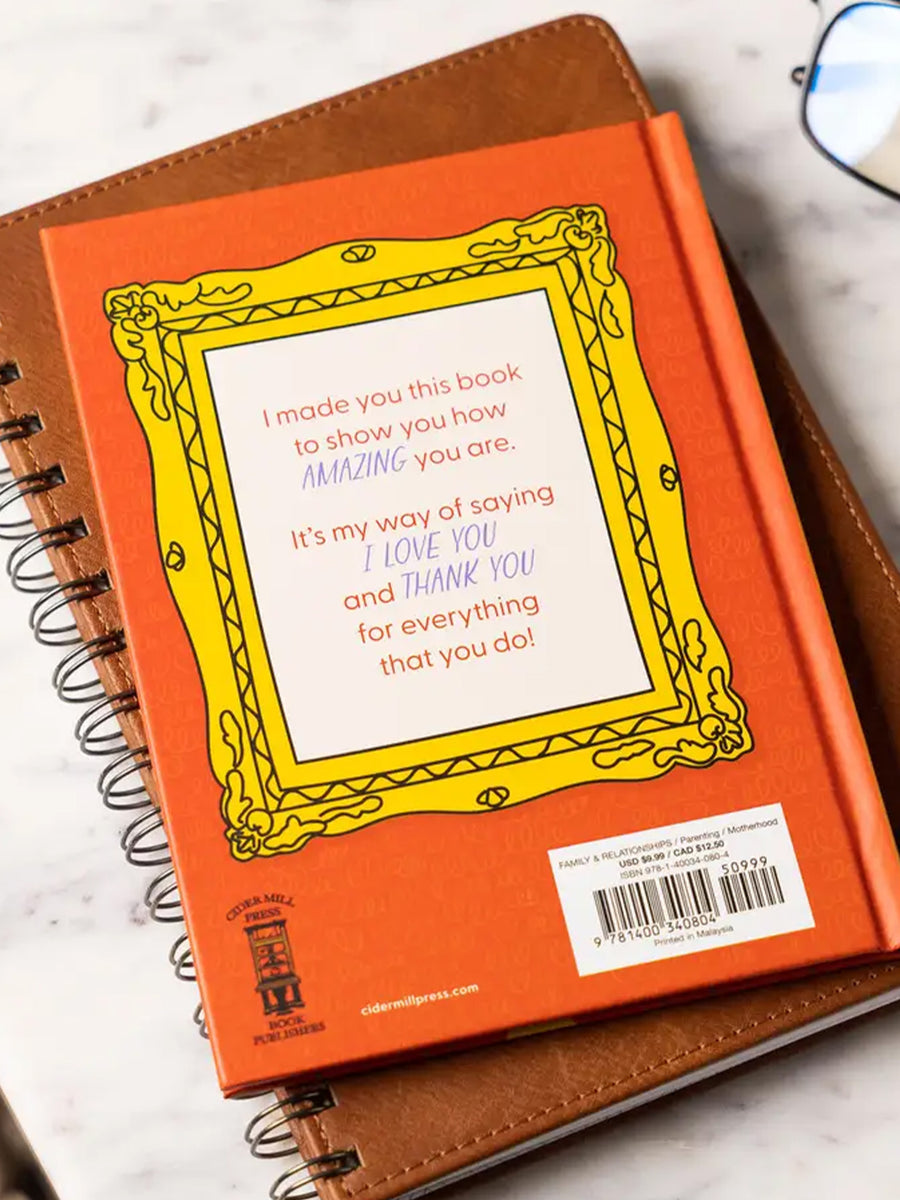 I made you this book
to show you how
AMAZING you are.
It's my way of saying
I LOVE YOU
and THANK YOU
for everything
that you do!
FAMILY & RELATIONSHIPS / Parenting / Motherhood
USD $9.99 / CAD $12.50
ISBN 978-1-40034-080-4
50999
9 781400 340804
Printed in Malaysia
CIDER MILL
PRESS
BOOK
PUBLISHERS
cidermillpress.com